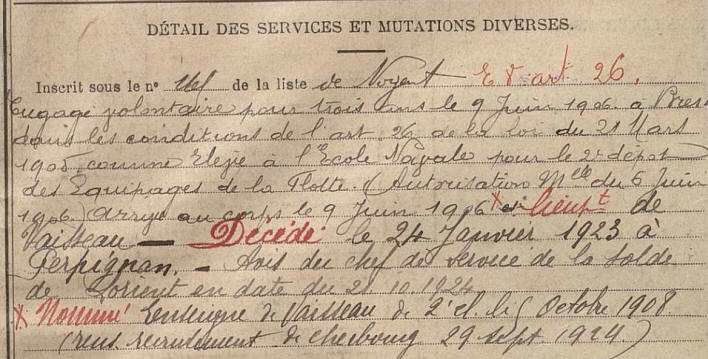 DÉTAIL DES SERVICES ET MUTATIONS DIVERSES.
Inscrit sous le nº de la liste de Nogent E V art 26.
Engagé volontaire pour trois ans le 9 Juin 1906 à Brest
dans les conditions de l'art. 26 de la Loi du 21 Mars
1905 comme Elève à l'Ecole Navale pour le 2e dépôt
des Equipages de la Flotte. (Autorisation Mlle du 6 Juin
1906) arrivé au corps le 9 Juin 1906 X lieut de
Vaisseau — Décédé le 24 Janvier 1923 à
Perpignan. — Avis du chef de service de la solde
de Lorient en date du 21.10.1924
X Nommé Enseigne de Vaisseau de 2e cl. le 5 Octobre 1908
(rens. recrutement de Cherbourg 29 sept. 1924)